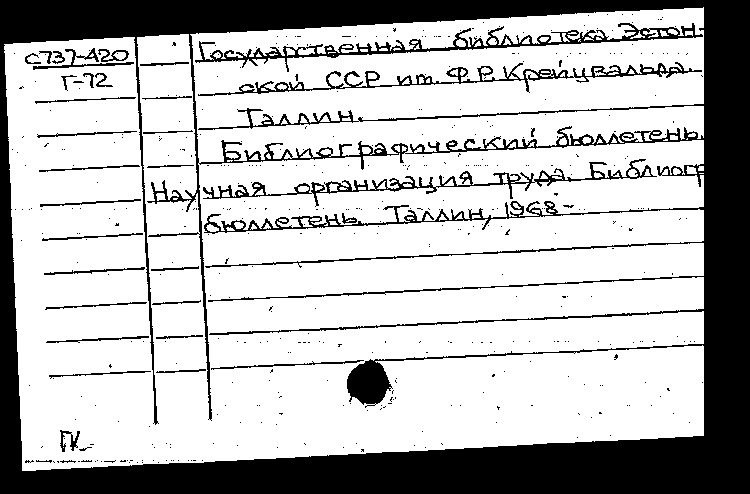 С737-420
Г-72
Государственная библиотека Эстон-
ской ССР им. Ф.Р. Крейцвальда.
Таллин.
Библиографический бюллетень.
Научная организация труда. Библиогр
бюллетень. Таллин, 1968 -
ГК